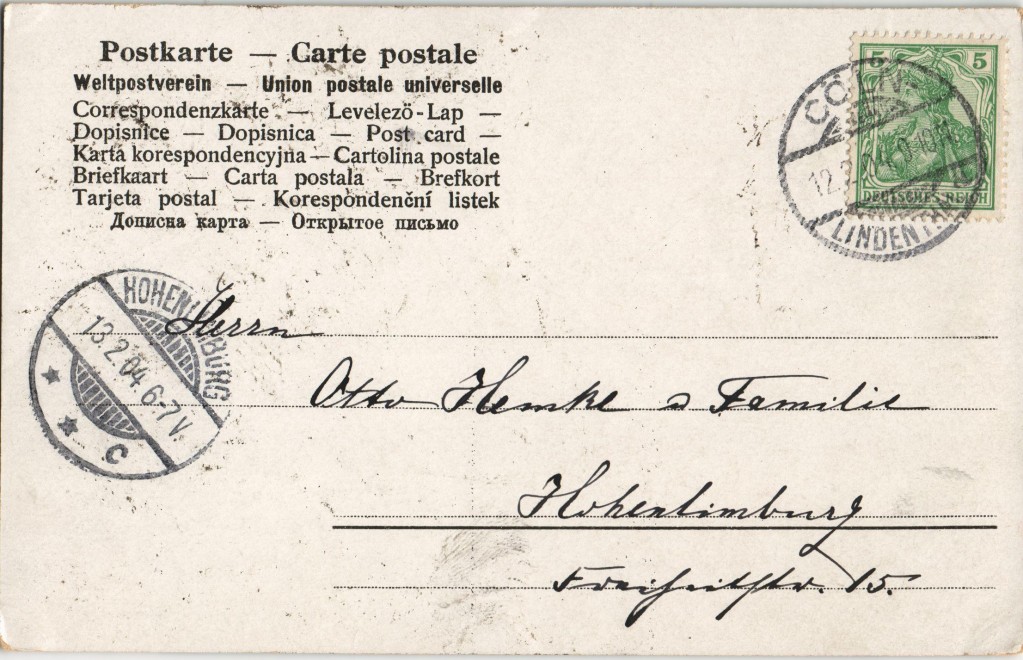 Postkarte — Carte postale
Weltpostverein — Union postale universelle
Correspondenzkarte — Levelező-Lap —
Dopisnice — Dopisnica — Post card —
Karta korespondencyjna — Cartolina postale
Briefkaart — Carta postala — Brefkort
Tarjeta postal — Korespondenční listek
Дописна карта — Открытое письмо
5 5
DEUTSCHES REICH
CÖLN
12.
LINDENTHAL
HOHENLIMBURG
13.2.04.6-7V.
C
Herrn
Otto Hemke & Familie
Hohenlimburg
Freiheitstr. 15.